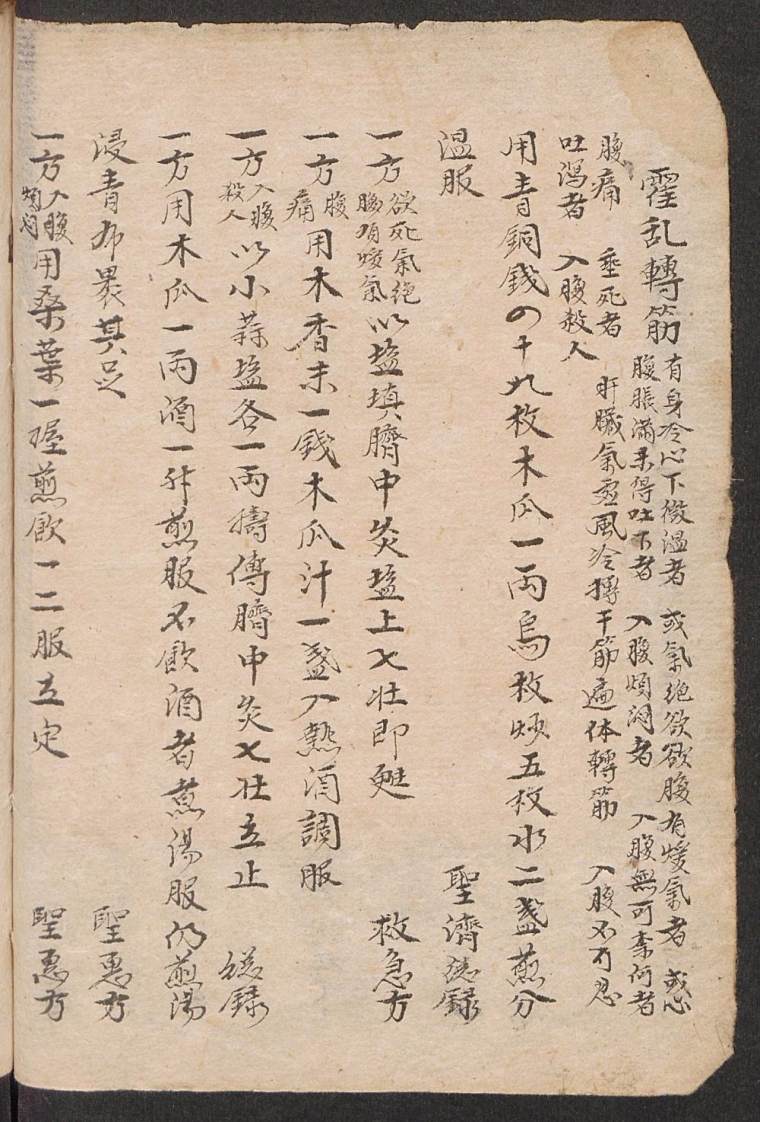 霍乱轉筋 有身冷心下微温者 或氣絶欲欲腹有煖氣者 或心
腹脹滿未得吐下者 入腹煩悶者 入腹無可柰何者
腹痛 垂死者 肝臓氣虚風冷搏于筋遍体轉筋 入腹不可忍
吐瀉者 入腹殺人
用青銅錢四十九枚木瓜一両烏梅炒五枚水二盞煎分
温服 聖濟総録
一方欲死氣绝腹有煖氣以塩填臍中灸塩上七壮即甦 救急方
一方腹痛用木香末一錢木瓜汁一盞入熱酒調服
一方入腹殺人以小蒜塩各一両擣傅臍中灸七壮立止 総録
一方用木瓜一両酒一升煎服不飲酒者煎湯服仍煎湯
浸青布裹其足 聖惠方
一方入腹煩悶用桑葉一握煎飲一二服立定 聖惠方